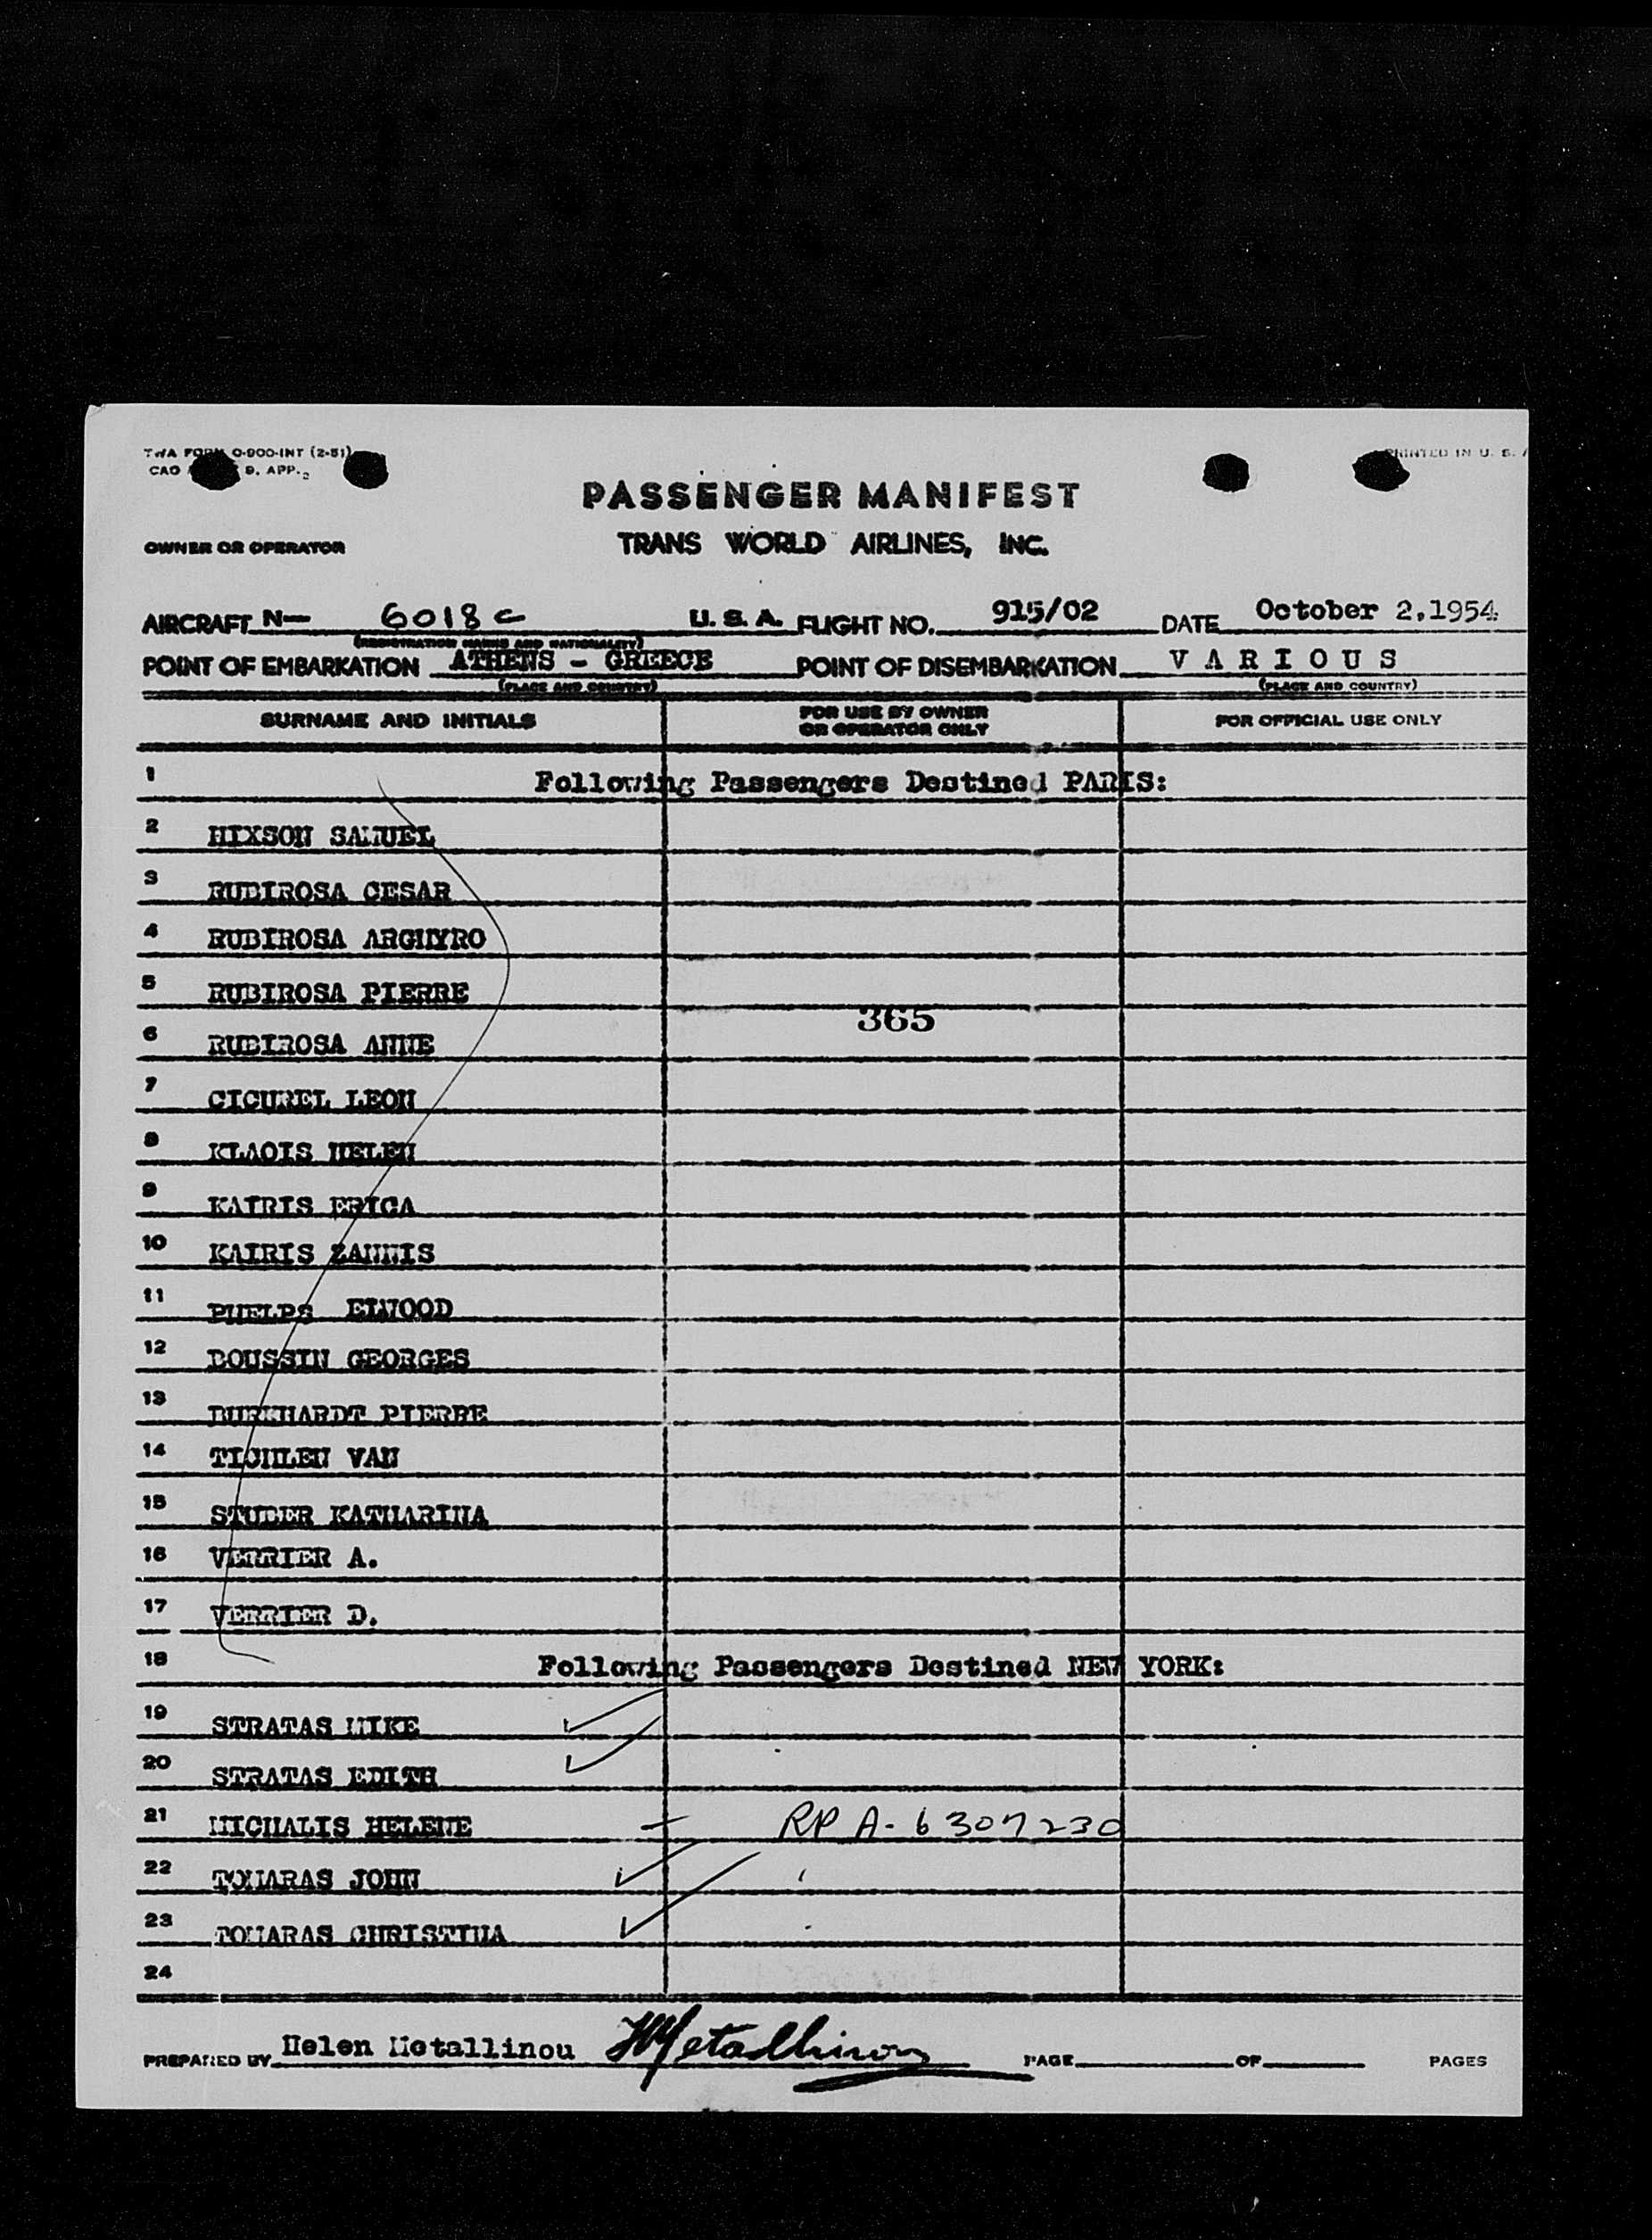 TWA FORM O-900-INT (2-51)
CAO 9. APP. 2
PRINTED IN U. S. A
PASSENGER MANIFEST
OWNER OR OPERATOR TRANS WORLD AIRLINES, INC.
AIRCRAFT N— 6018 C U. S. A. FLIGHT NO. 915/02 DATE October 2,1954
(REGISTRATION MARKS AND NATIONALITY)
POINT OF EMBARKATION ATHENS - GREECE POINT OF DISEMBARKATION V A R I O U S
(PLACE AND COUNTRY) (PLACE AND COUNTRY)
SURNAME AND INITIALS FOR USE BY OWNER OR OPERATOR ONLY FOR OFFICIAL USE ONLY
1 Following Passengers Destined PARIS:
2 HIXSON SAMUEL
3 RUBIROSA CESAR
4 RUBIROSA ARGHYRO
5 RUBIROSA PIERRE
365
6 RUBIROSA ANNE
7 CICUREL LEON
8 KLAOIS HELEN
9 KAIRIS ERICA
10 KAIRIS ZANNIS
11 PHELPS ELWOOD
12 BOUSSIN GEORGES
13 BURKHARDT PIERRE
14 TICHLEN VAN
15 STUDER KATHARINA
16 VERRIER A.
17 VERRIER D.
18 Following Passengers Destined NEW YORK:
19 STRATAS MIKE
20 STRATAS EDITH
21 MICHALIS HELENE RP A-6307230
22 TOMARAS JOHN
23 TOMARAS CHRISTINA
24
PREPARED BY Helen Metallinou HMetallinou PAGE OF PAGES